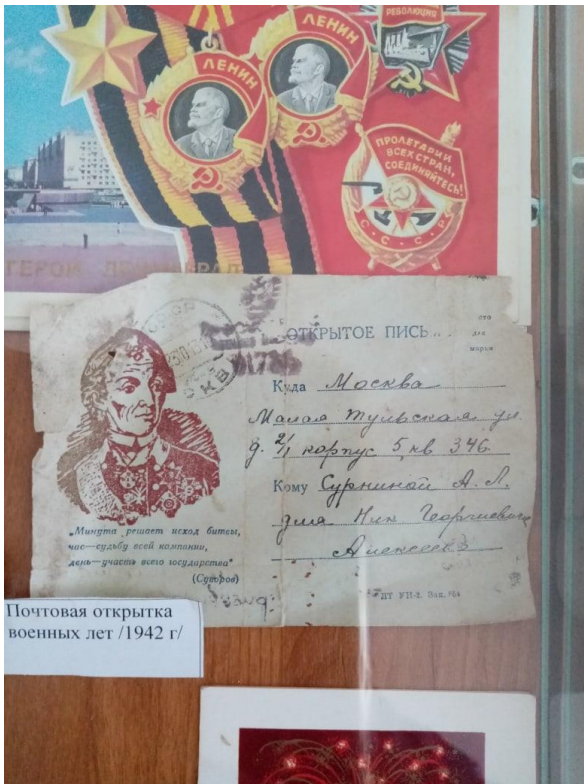 РЕВОЛЮЦИЯ
ЛЕНИН
ЛЕНИН
ПРОЛЕТАРИИ
ВСЕХ СТРАН,
СОЕДИНЯЙТЕСЬ!
СССР
ГЕРОЙ ЛЕНИНГРАД
ОТКРЫТОЕ ПИСЬ
для
марки
Куда Москва
Малая Тульская ул.
д. 2/1 корпус 5 кв 346
Кому Суркиной А. Л.
для Ник Георгиевича
„Минута решает исход битвы,
час—судьбу всей кампании,
день—участь всего государства"
(Суворов)
Почтовая открытка
военных лет /1942 г/